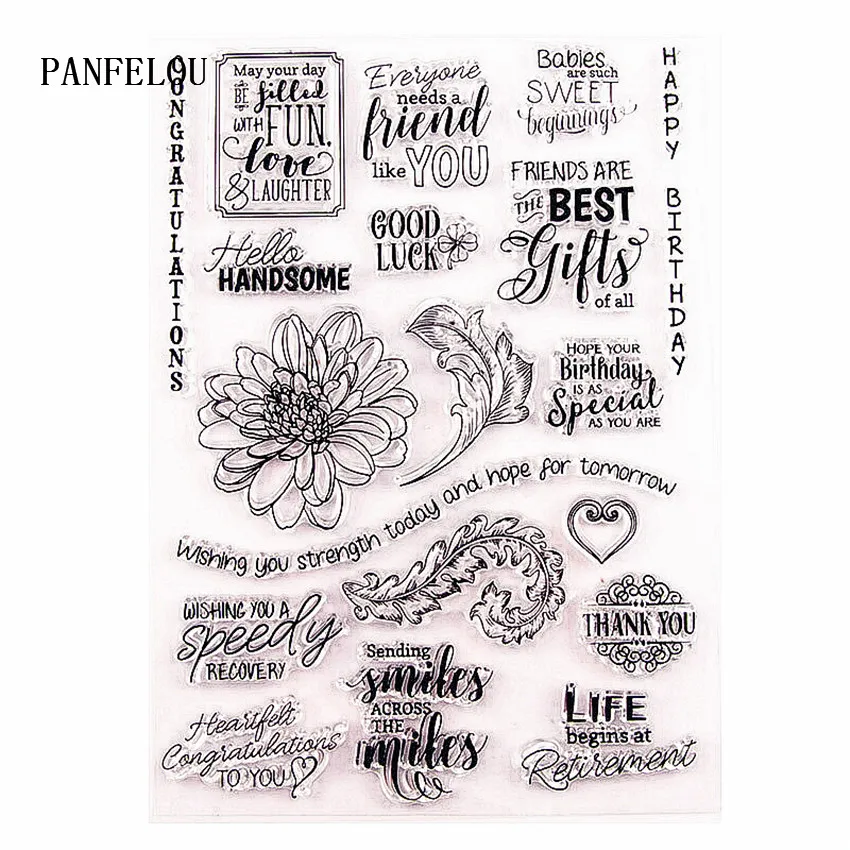 PANFELOU
CONGRATULATIONS
May your day
BE filled
WITH FUN,
love
& LAUGHTER
Everyone
needs a
friend
like YOU
Babies
are such
SWEET
beginnings
HAPPY BIRTHDAY
FRIENDS ARE
THE BEST
Gifts
of all
Hello
HANDSOME
GOOD
LUCK
HOPE YOUR
Birthday
IS AS
Special
AS YOU ARE
Wishing you strength today and hope for tomorrow
WISHING YOU A
speedy
RECOVERY
THANK YOU
Sending
smiles
ACROSS
THE
miles
Heartfelt
Congratulations
TO YOU
LIFE
begins at
Retirement